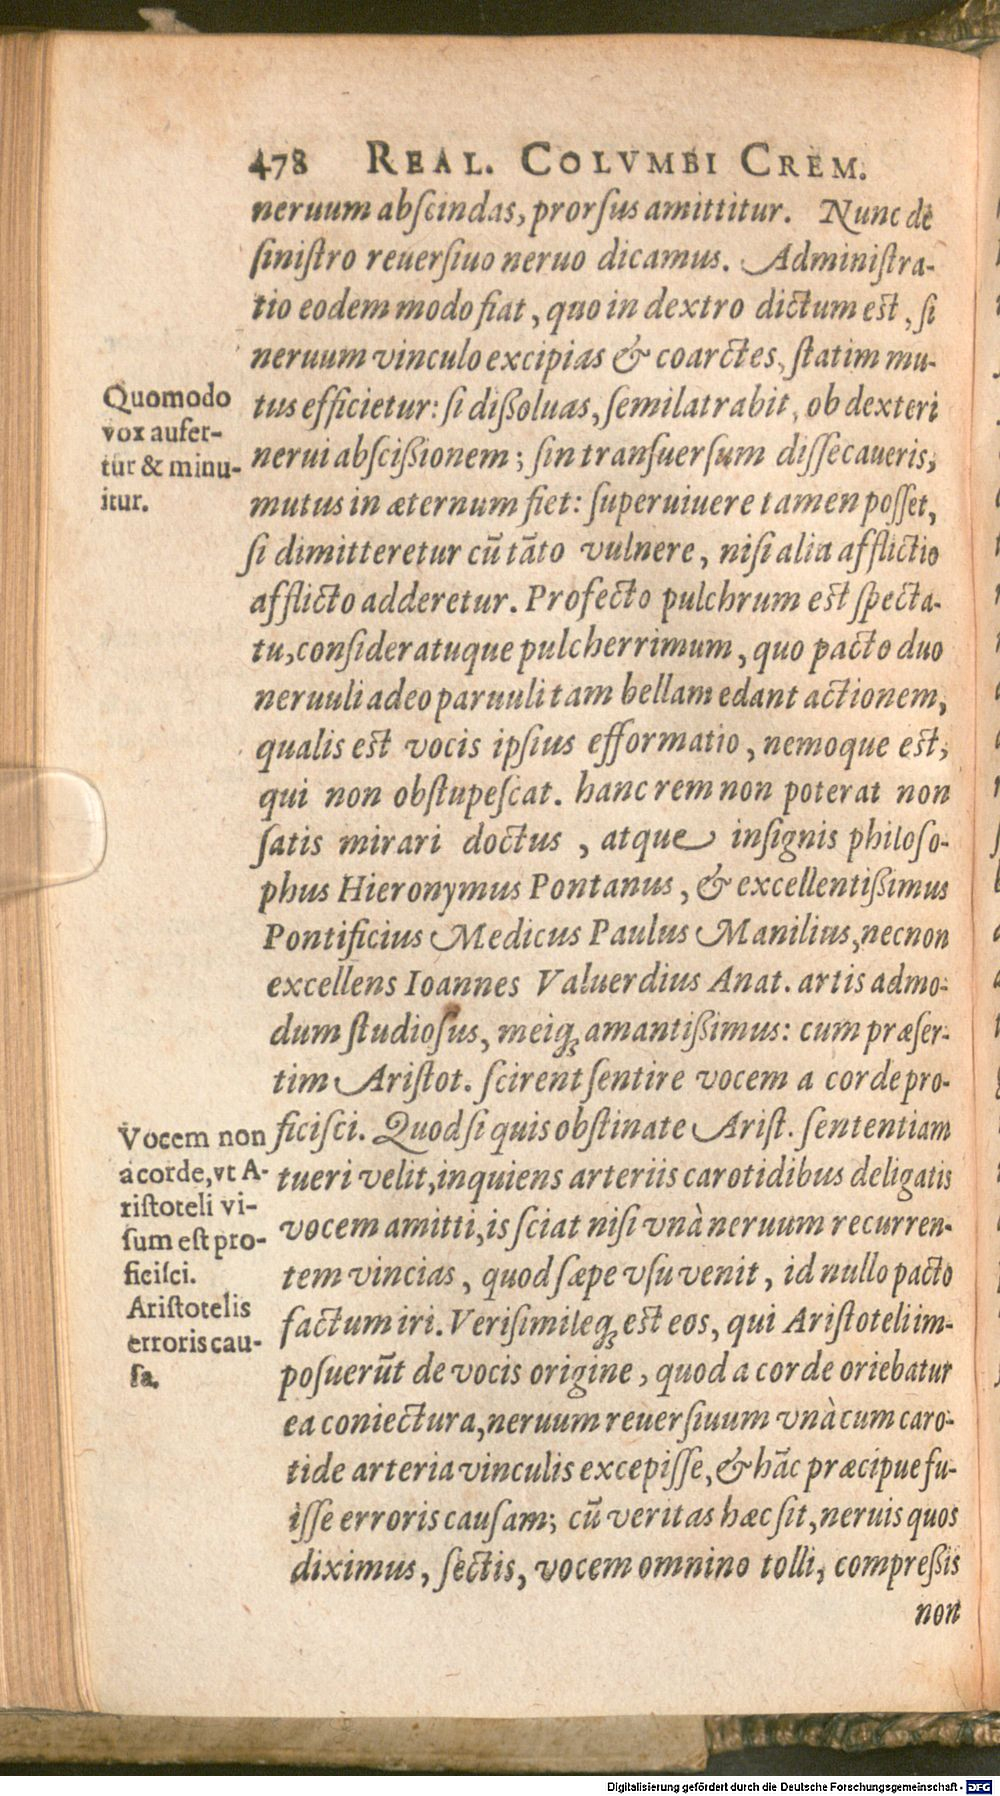 478 REAL. COLVMBI CREM.
neruum abſcindas, prorſus amittitur. Nunc de
ſiniſtro reuerſiuo neruo dicamus. Adminiſtra-
tio eodem modo fiat, quo in dextro dictum est, ſi
neruum vinculo excipias & coarctes, ſtatim mu-
tus efficietur: ſi dißoluas, ſemilatrabit, ob dexteri
nerui abſcißionem; ſin tranſuerſum diſſecaueris,
mutus in æternum fiet: ſuperuiuere tamen poſſet,
ſi dimitteretur cū tāto vulnere, niſi alia afflictio
afflicto adderetur. Profecto pulchrum est ſpecta-
tu, conſideratuque pulcherrimum, quo pacto duo
neruuli adeo paruuli tam bellam edant actionem,
qualis est vocis ipſius efformatio, nemoque est,
qui non obſtupeſcat. hanc rem non poterat non
ſatis mirari doctus, atque inſignis philoſo-
phus Hieronymus Pontanus, & excellentißimus
Pontificius Medicus Paulus Manilius, necnon
excellens Ioannes Valuerdius Anat. artis admo-
dum ſtudioſus, meiq; amantißimus: cum præſer-
tim Ariſtot. ſcirent ſentire vocem a corde pro-
ficiſci. Quod ſi quis obſtinate Ariſt. ſententiam
tueri velit, inquiens arteriis carotidibus deligatis
vocem amitti, is ſciat niſi vnà neruum recurren-
tem vincias, quod ſæpe vſu venit, id nullo pacto
factum iri. Veriſimileq; est eos, qui Ariſtoteli im-
poſuerūt de vocis origine, quod a corde oriebatur
ea coniectura, neruum reuerſiuum vnà cum caro-
tide arteria vinculis excepiſſe, & hāc præcipue fu-
iſſe erroris cauſam; cū veritas hæc ſit, neruis quos
diximus, ſectis, vocem omnino tolli, compreßis
non
Quomodo
vox aufer-
tur & minu-
itur.
Vocem non
a corde, vt A-
riſtoteli vi-
ſum eſt pro-
ficiſci.
Ariſtotelis
erroris cau-
ſa.
Digitalisierung gefördert durch die Deutsche Forschungsgemeinschaft - DFG